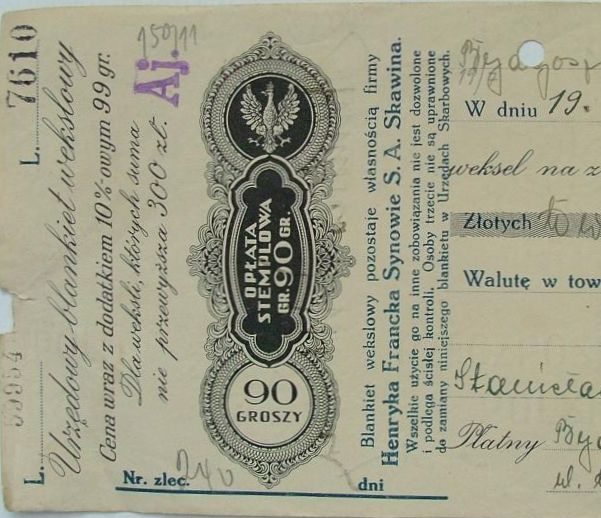 L. 53954 L. 7610
Urzędowy blankiet wekslowy
Cena wraz z dodatkiem 10% owym 99 gr.
Dla weksli, których suma
nie przewyższa 300 zł.
Aj.
150/11
OPŁATA
STEMPLOWA
GR. 90 GR.
90
GROSZY
Nr. zlec. 240 dni
Blankiet wekslowy pozostaje własnością firmy
Henryka Francka Synowie S. A. Skawina.
Wszelkie użycie go na inne zobowiązania nie jest dozwolone
i podlega ścisłej kontroli. Osoby trzecie nie są uprawnione
do zamiany niniejszego blankietu w Urzędach Skarbowych.
W dniu 19.
weksel na z
Złotych
Walutę w tow
Stanisła
Płatny Byd
ul.